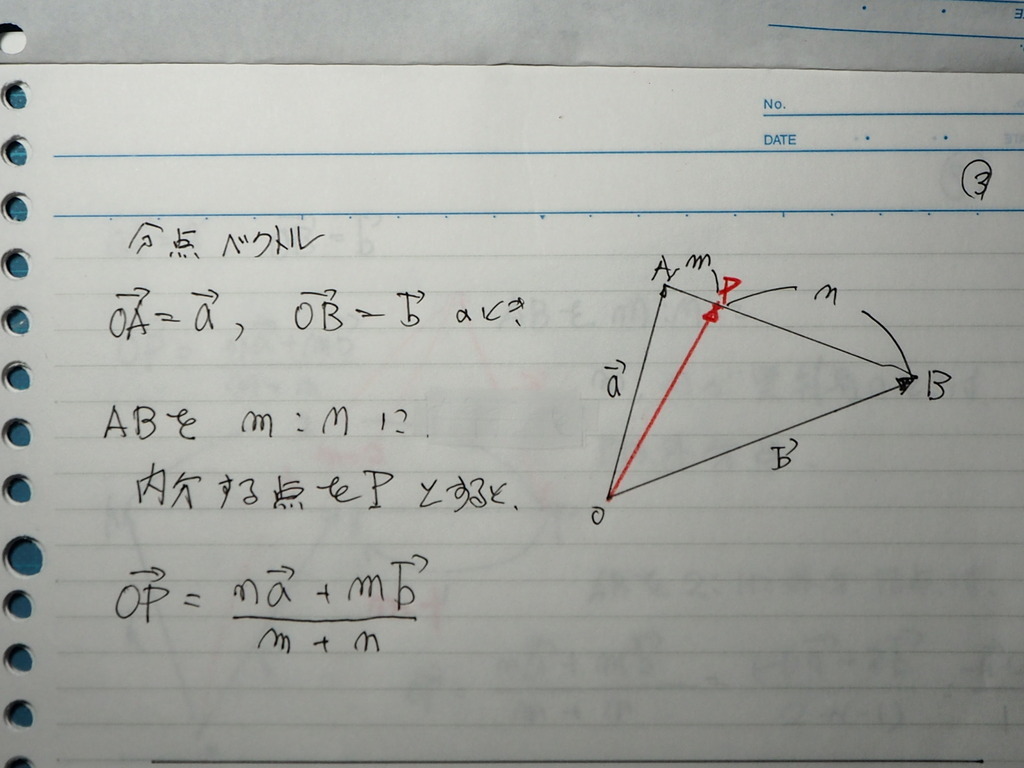 No.
DATE
③
分点ベクトル
OA→ = a→, OB→ = b→ のとき
ABを m : n に
内分する点をPとすると、
OP→ = (na→ + mb→) / (m + n)
A m P n
a→ B
b→
O